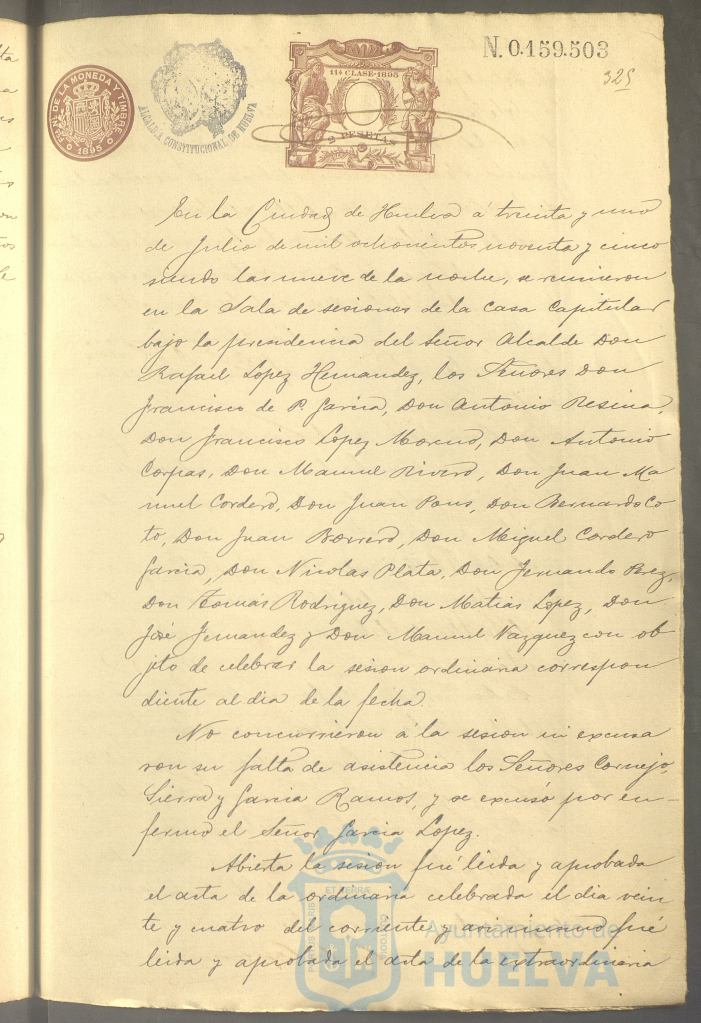 N. 0.159.503
325
11ª CLASE-1895
2 PESETAS
NAL DE LA MONEDA Y TIMBRE
1895
ALCALDIA CONSTITUCIONAL DE HUELVA
En la Ciudad de Huelva á treinta y uno
de Julio de mil ochocientos noventa y cinco
siendo las nueve de la noche, se reunieron
en la Sala de sesiones de la Casa Capitular
bajo la presidencia del Señor Alcalde Don
Rafael Lopez Hernandez, los Señores Don
Francisco de P. Garcia, Don Antonio Resina,
Don Francisco Lopez Moreno, Don Antonio
Corpas, Don Manuel Rivero, Don Juan Ma
nuel Cordero, Don Juan Pons, Don Bernardo Co
to, Don Juan Borrero, Don Miguel Cordero
Garcia, Don Nicolas Plata, Don Fernando Perez,
Don Tomás Rodriguez, Don Matias Lopez, Don
José Fernandez y Don Manuel Vazquez con ob
jeto de celebrar la sesion ordinaria correspon
diente al dia de la fecha.
No concurrieron á la sesion ni excusa
ron su falta de asistencia los Señores Cornejo,
Sierra y Garcia Ramos, y se excusó por en-
fermo el Señor Garcia Lopez.
Abierta la sesion fué leida y aprobada
el acta de la ordinaria celebrada el dia vein
te y cuatro del corriente y asi mismo fué
leida y aprobada el acta de la extraordinaria
Ayuntamiento de
HUELVA